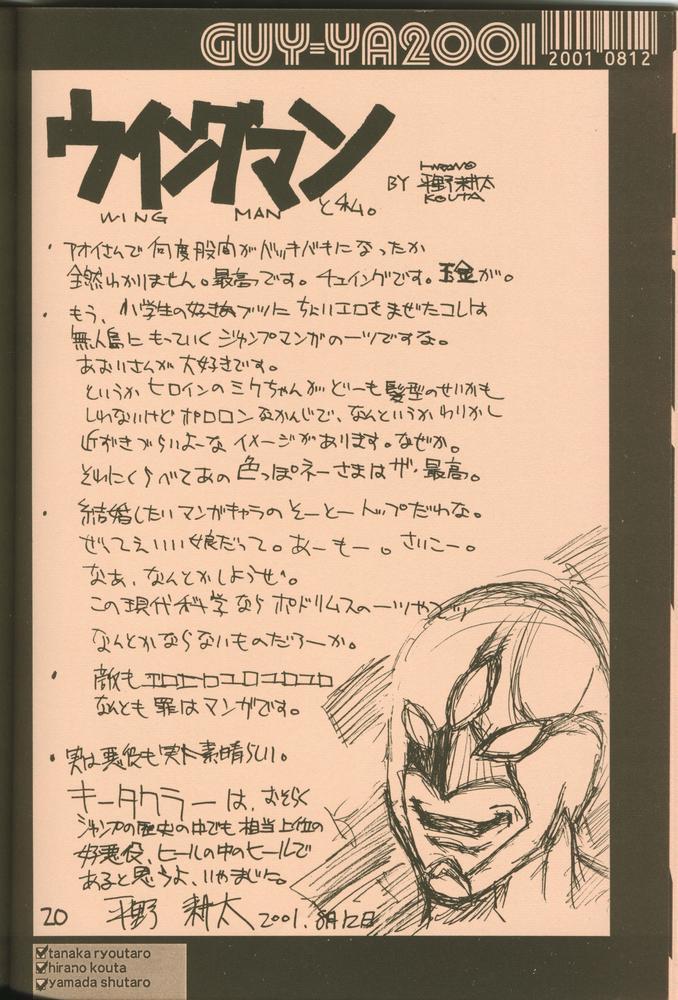 GUY-YA2001
2001 0812
ウイングマン
WING MAN と私。
BY 平野耕太
HIRANO
KOUTA
・アオイさんで何度股間がバッキバキになったか
全然わかりません。最高です。チュイングです。玉金が。
・もう、小学生の好きなブツに ちょいエロをまぜたコレは
無人島にもっていくジャンプマンガの一ツですな。
あおいさんが大好きです。
というかヒロインのミクちゃんがどーも髪型のせいかも
しれないけどポロロンなかんじで、なんというかわりかし
近がきづらいよーなイメージがあります。なぜか。
それにくらべてあの色っぽネーさまはザ・最高。
・結婚したいマンガキャラのそーとートップだわな。
ぜってえいい娘だって。あーもー。さいこー。
なあ、なんとかしようぜ。
この現代科学ならポドリムスの一ツや二ツ
なんとかならないものだろーか。
・敵もエロエロエロエロエロ
なんとも罪はマンガです。
・実は悪役も実に素晴らしい。
キータクラーは、おそらく
ジャンプの歴史の中でも相当上位の
好悪役、ヒールの中のヒールで
あると思うよ、いやまじに。
平野 耕太 2001.8月12日
20
tanaka ryoutaro
hirano kouta
yamada shutaro